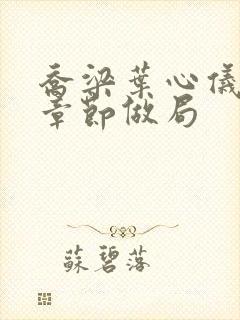 喬梁葉心儀
章節做局
蘇碧落